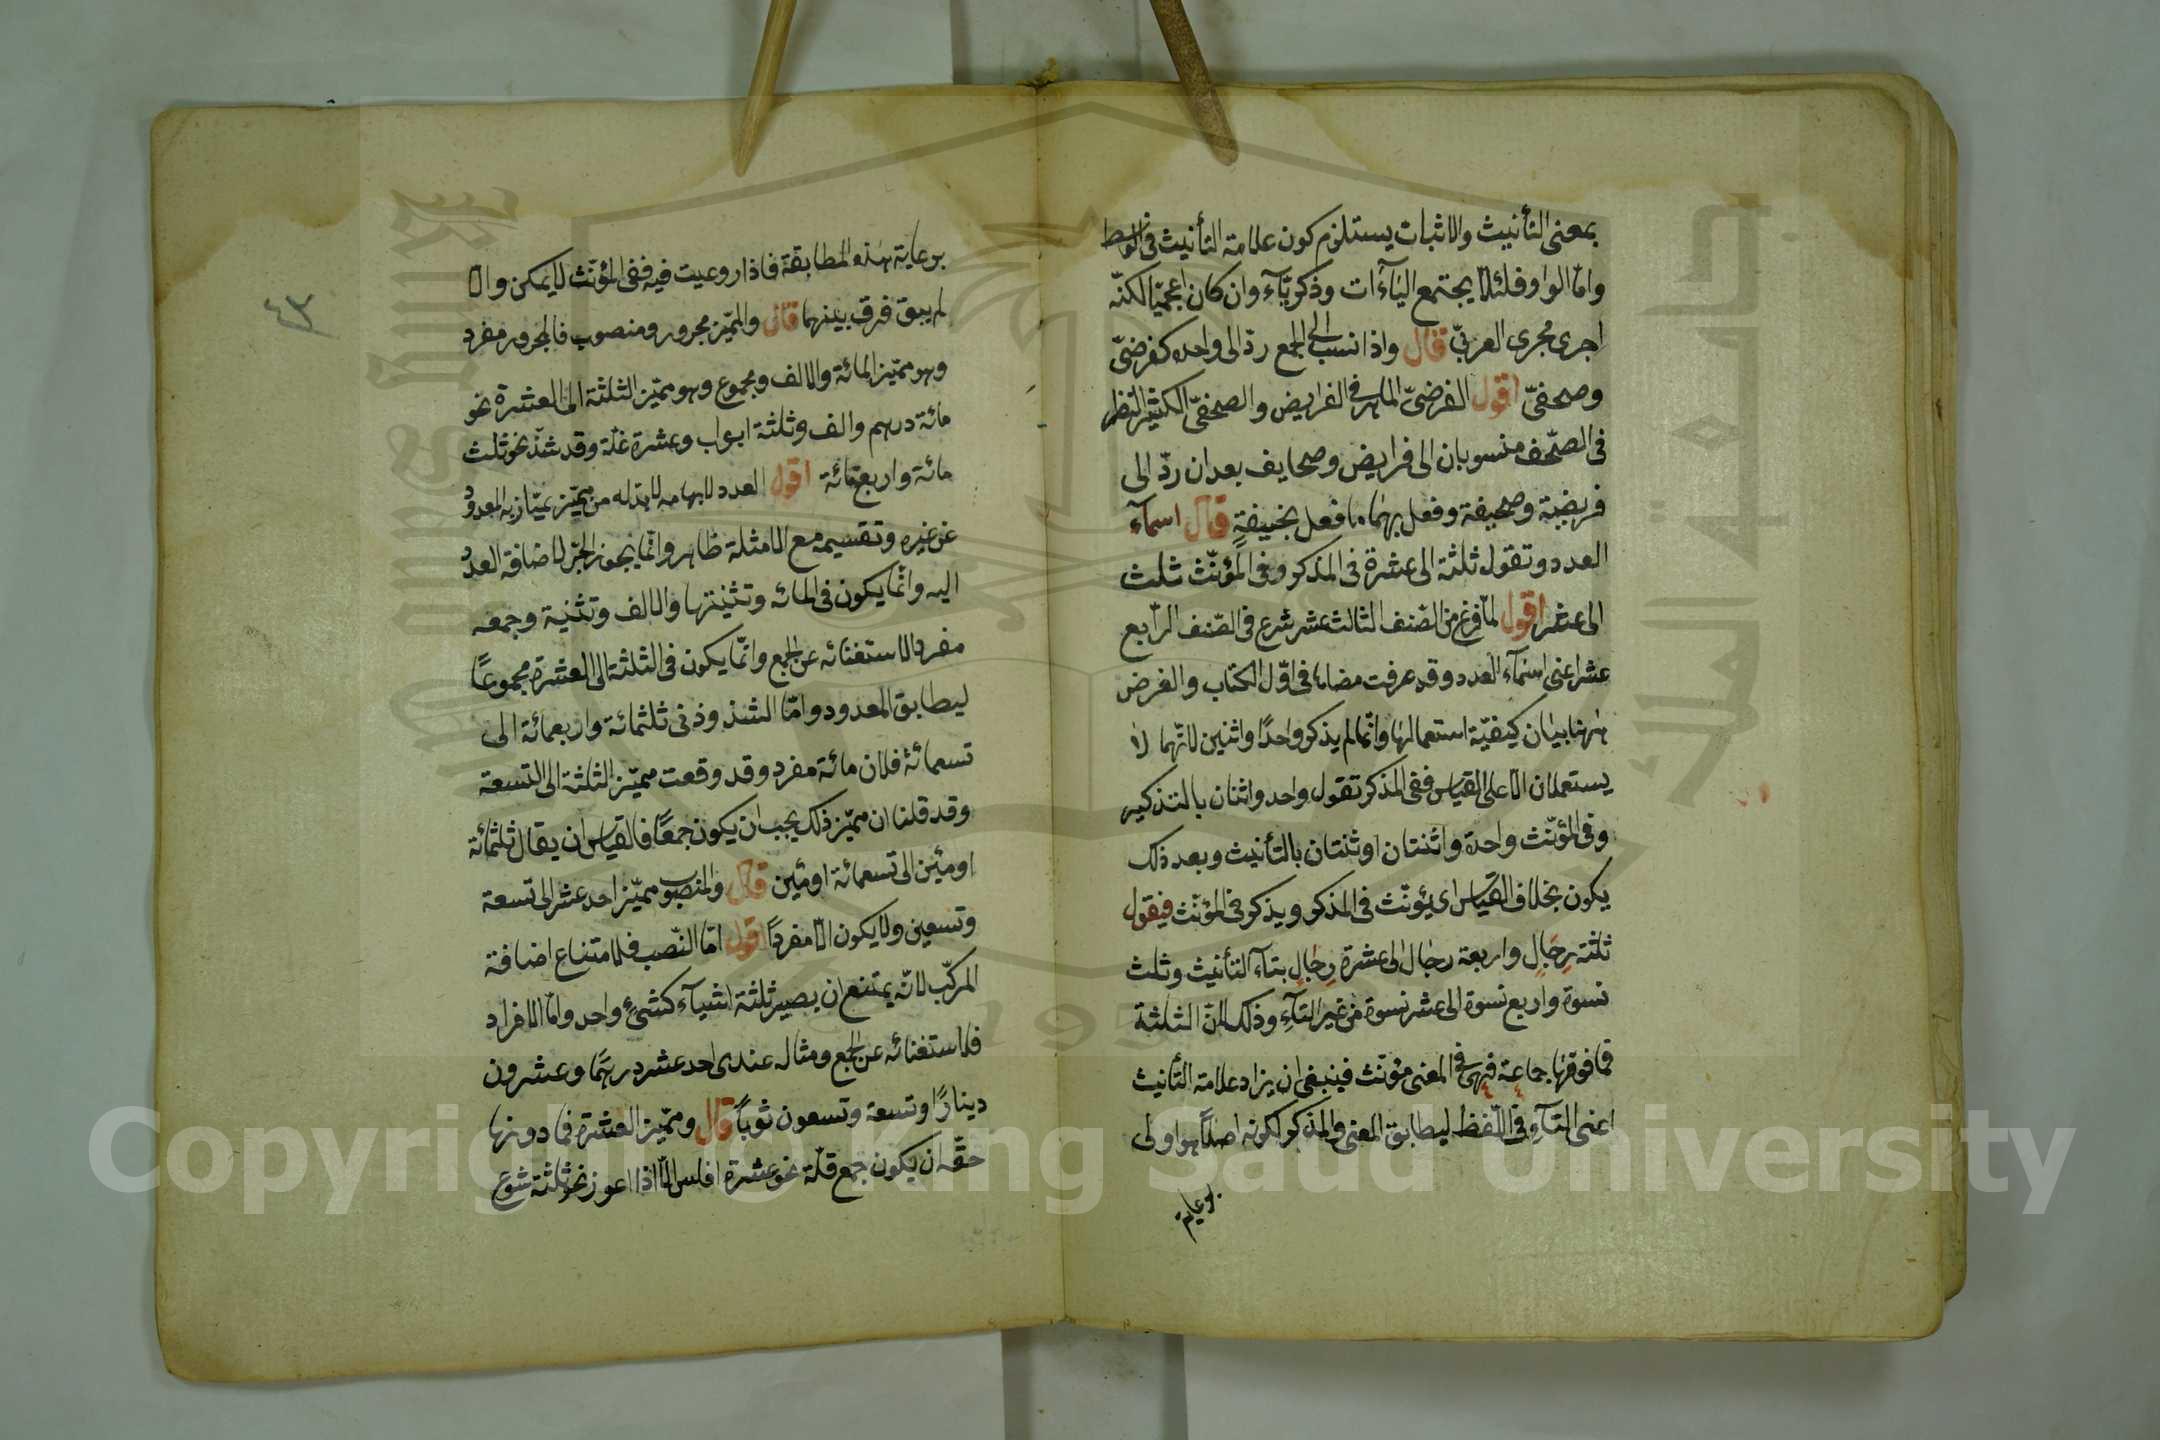 بمعنى التأنيث والاثبات يستلزم كون علامة التأنيث فى الوسط
وامّا الواو فلئلّا يجتمع اليآآت وذكر يآء وان كان اعجميّا لكنّه
اجرى مجرى العربىّ قال واذا نسب الى الجمع ردّ الى واحده كفرضىّ
وصحفىّ اقول الفرضىّ الماهر فى الفرايض والصحفىّ الكثير النظر
فى الصّحف منسوبان الى فرايض وصحايف بعد ان ردّ الى
فريضة وصحيفة وفعل بهما ما فعل بحنيفةٍ قال اسمآء
العدد وتقول ثلثة الى عشرة فى المذكر وفى المؤنّث ثلث
الى عشر اقول لمّا فرغ من الصّنف الثالث عشر شرع فى الصّنف الرّابع
عشر اعنى اسمآء العدد وقد عرفت معناها فى اوّل الكتاب والغرض
ههنا بيان كيفيّة استعمالها وانّما لم يذكر واحدًا واثنين لانّهما لا
يستعملان الّا على القياس ففى المذكر تقول واحد واثنان بالتذكير
وفى المؤنّث واحدة واثنتان او ثنتان بالتأنيث وبعد ذلك
يكون بخلاف القياس اى يؤنّث فى المذكر ويذكر فى المؤنّث فيقول
ثلثة رجال واربعة رجال الى عشرة رجال بتآء التأنيث وثلث
نسوة واربع نسوة الى عشر نسوة من غير التآء وذلك لانّ الثلثة
فما فوقها جماعة فهى فى المعنى مؤنّث فينبغى ان يزاد علامة التأنيث
اعنى التآء فى اللّفظ ليطابق المعنى والمذكر لكونه اصلاً هو اولى
برعاية
برعاية هذه المطابقة فاذا روعيت فيه ففى المؤنّث لا يمكن والّا
لم يبق فرق بينهما قال والمميّز مجرور ومنصوب فالمجرور مفرد
وهو مميّز المائة والالف ومجموع وهو مميّز الثلثة الى العشرة نحو
مائة درهم والف وثلثة ابواب وعشرة غلّة وقد شذّ نحو ثلث
مائة واربع مائة اقول العدد لابهامه لا بدّ له من مميّز يمتاز به المعدود
عن غيره وتقسيمه مع الامثلة ظاهر وانّما يجوز الجرّ لاضافة العدد
اليه وانّما يكون فى المائه وتثنيتها والالف وتثنية وجمعه
مفرد الاستغنائه عن الجمع وانّما يكون فى الثلثة الى العشرة مجموعًا
ليطابق المعدود وامّا الشذوذ فى ثلثمائة واربعمائة الى
تسعمائة فلان مائة مفرد وقد وقعت مميّز الثلثة الى التسعة
وقد قلنا ان مميّز ذلك يجب ان يكون جمعًا فالقياس ان يقال ثلثمائة
او مئين الى تسعمائة او مئين قال والمنصوب مميّز احد عشر الى تسعة
وتسعين ولا يكون الّا مفردًا اقول امّا النّصب فلامتناع اضافة
المركّب لانّه يمتنع ان يصير ثلثة اشيآء كشئ واحد وامّا الافراد
فلاستغنائه عن الجمع ومثاله عندى احد عشر درهمًا وعشرون
دينارًا وتسعة وتسعون ثوبًا قال ومميّز العشرة فما دونها
حقّه ان يكون جمع قلّة نحو عشرة افلس الّا اذا اعوز نحو ثلثة شسوع
٤٣
Copyright © King Saud University